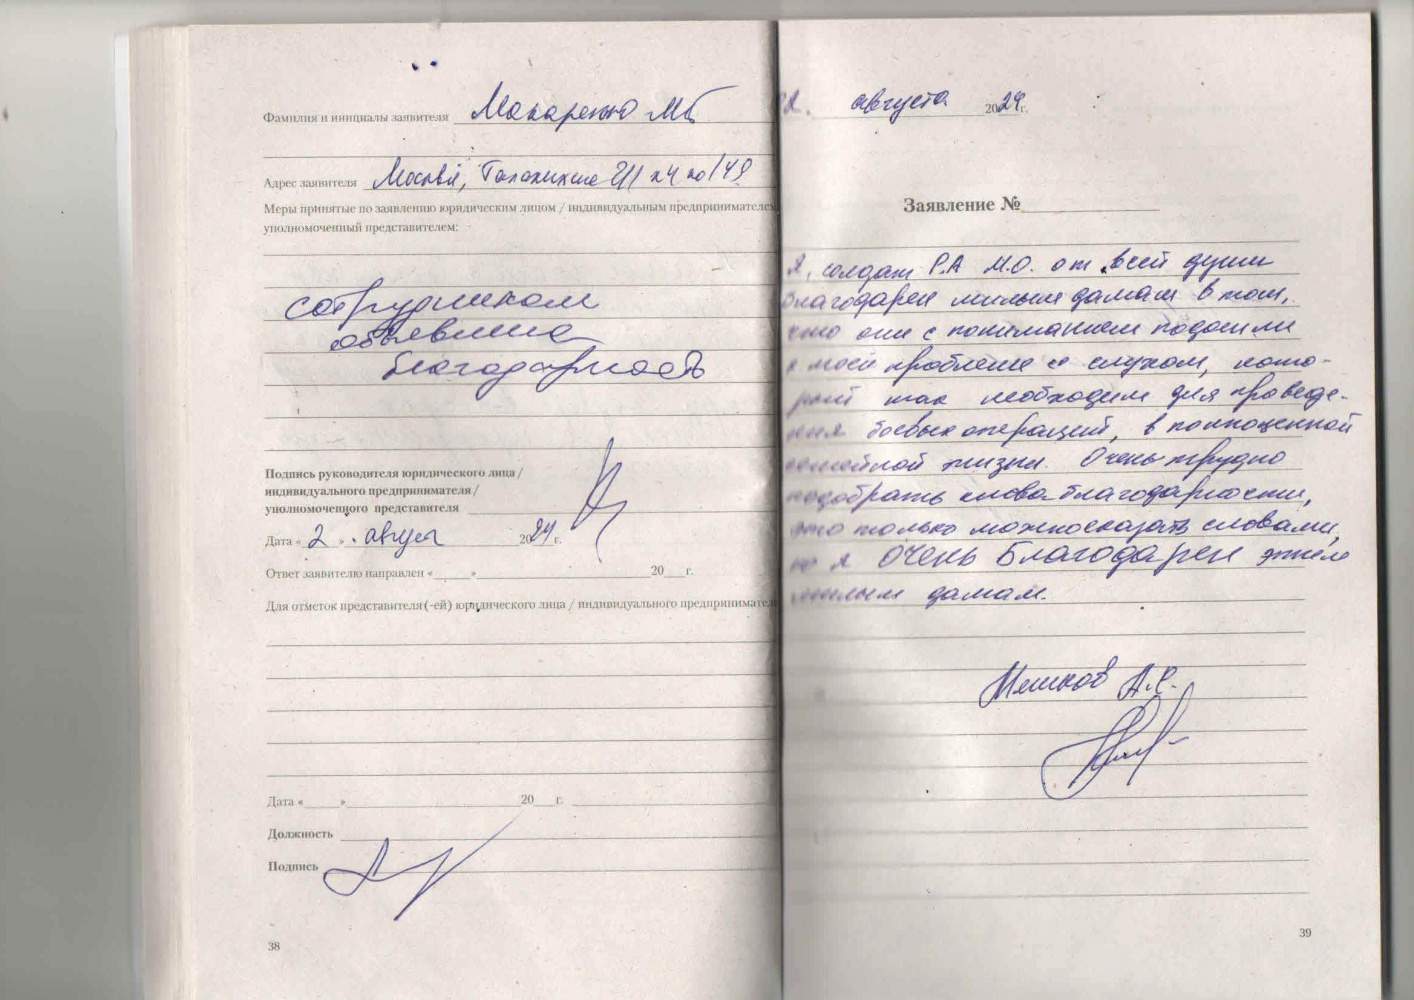 Фамилия и инициалы заявителя Макаренко МБ
Адрес заявителя Москва,
Меры принятые по заявлению юридическим лицом / индивидуальным предпринимателем,
уполномоченный представителем:
сотрудникам
объявлена
благодарность
Подпись руководителя юридического лица /
индивидуального предпринимателя /
уполномоченного представителя
Дата « 2 » август 2024 г.
Ответ заявителю направлен «______»____________________20___г.
Для отметок представителя(-ей) юридического лица / индивидуального предпринимателя
Дата «______»____________________20___г.
Должность
Подпись
38
августа 2024г.
Заявление №
Я, солдат Р.А М.О. от всей души
благодарен милым дамам в том,
что они с пониманием подошли
к моей проблеме со слухом, кото-
рый так необходим для проведе-
ния боевых операций, в полноценной
семейной жизни. Очень трудно
подобрать слова благодарности,
это только можно сказать словами,
но я ОЧЕНЬ Благодарен этим
милым дамам.
Мешков А.С.
39